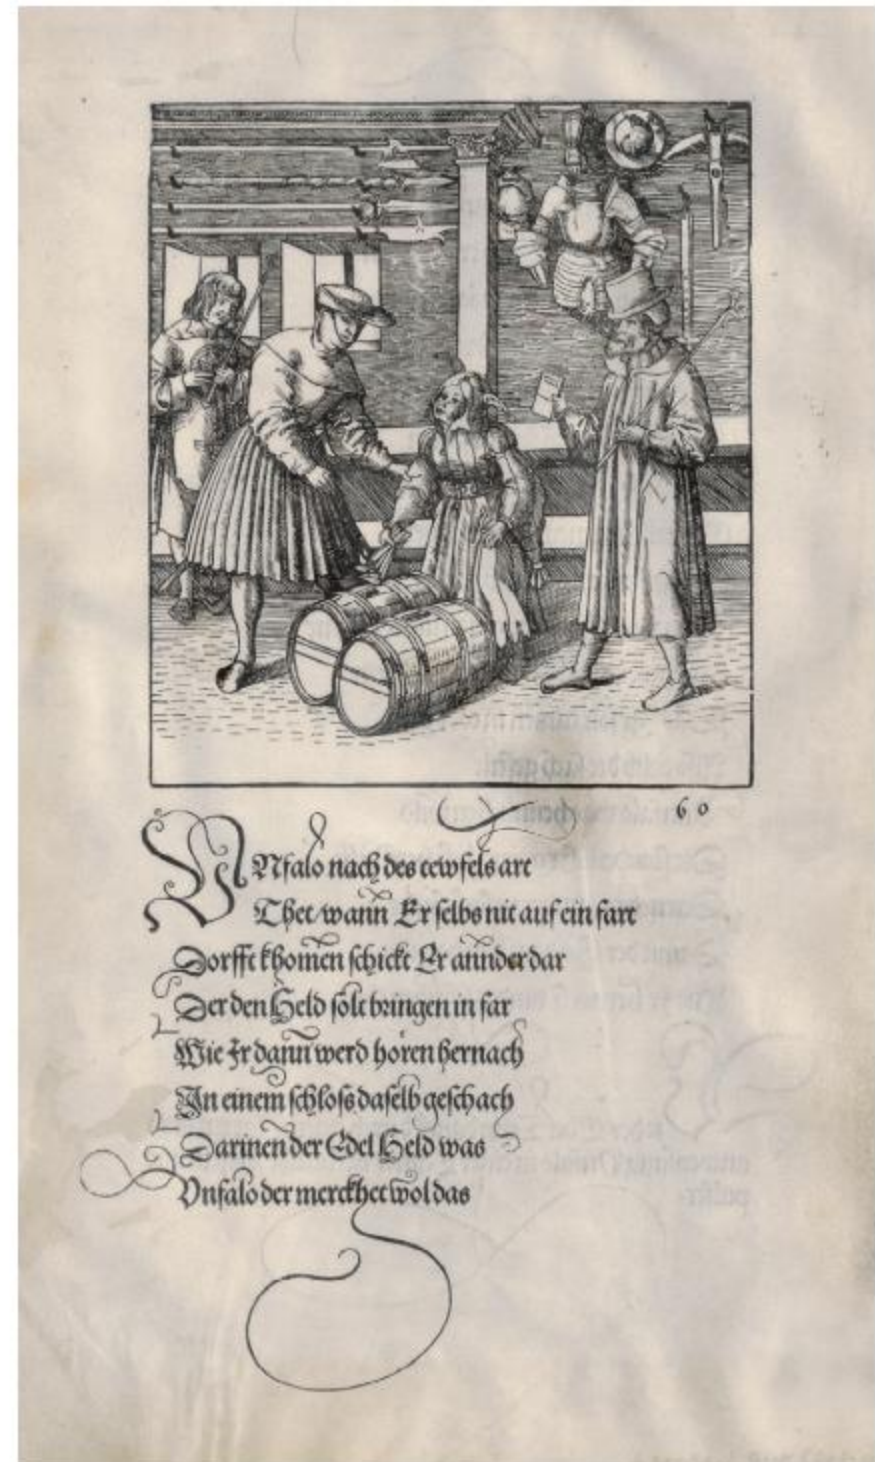 60
VNfalo nach des tewfels art
Thet/wann Er selbs nit auf ein fart
Dorfft khomen schickt Er annder dar
Der den Held solt bringen in far
Wie Ir dann werd hören hernach
In einem schloss daselb geschach
Darinen der Edel Held was
Vnfalo der merckhet wol das